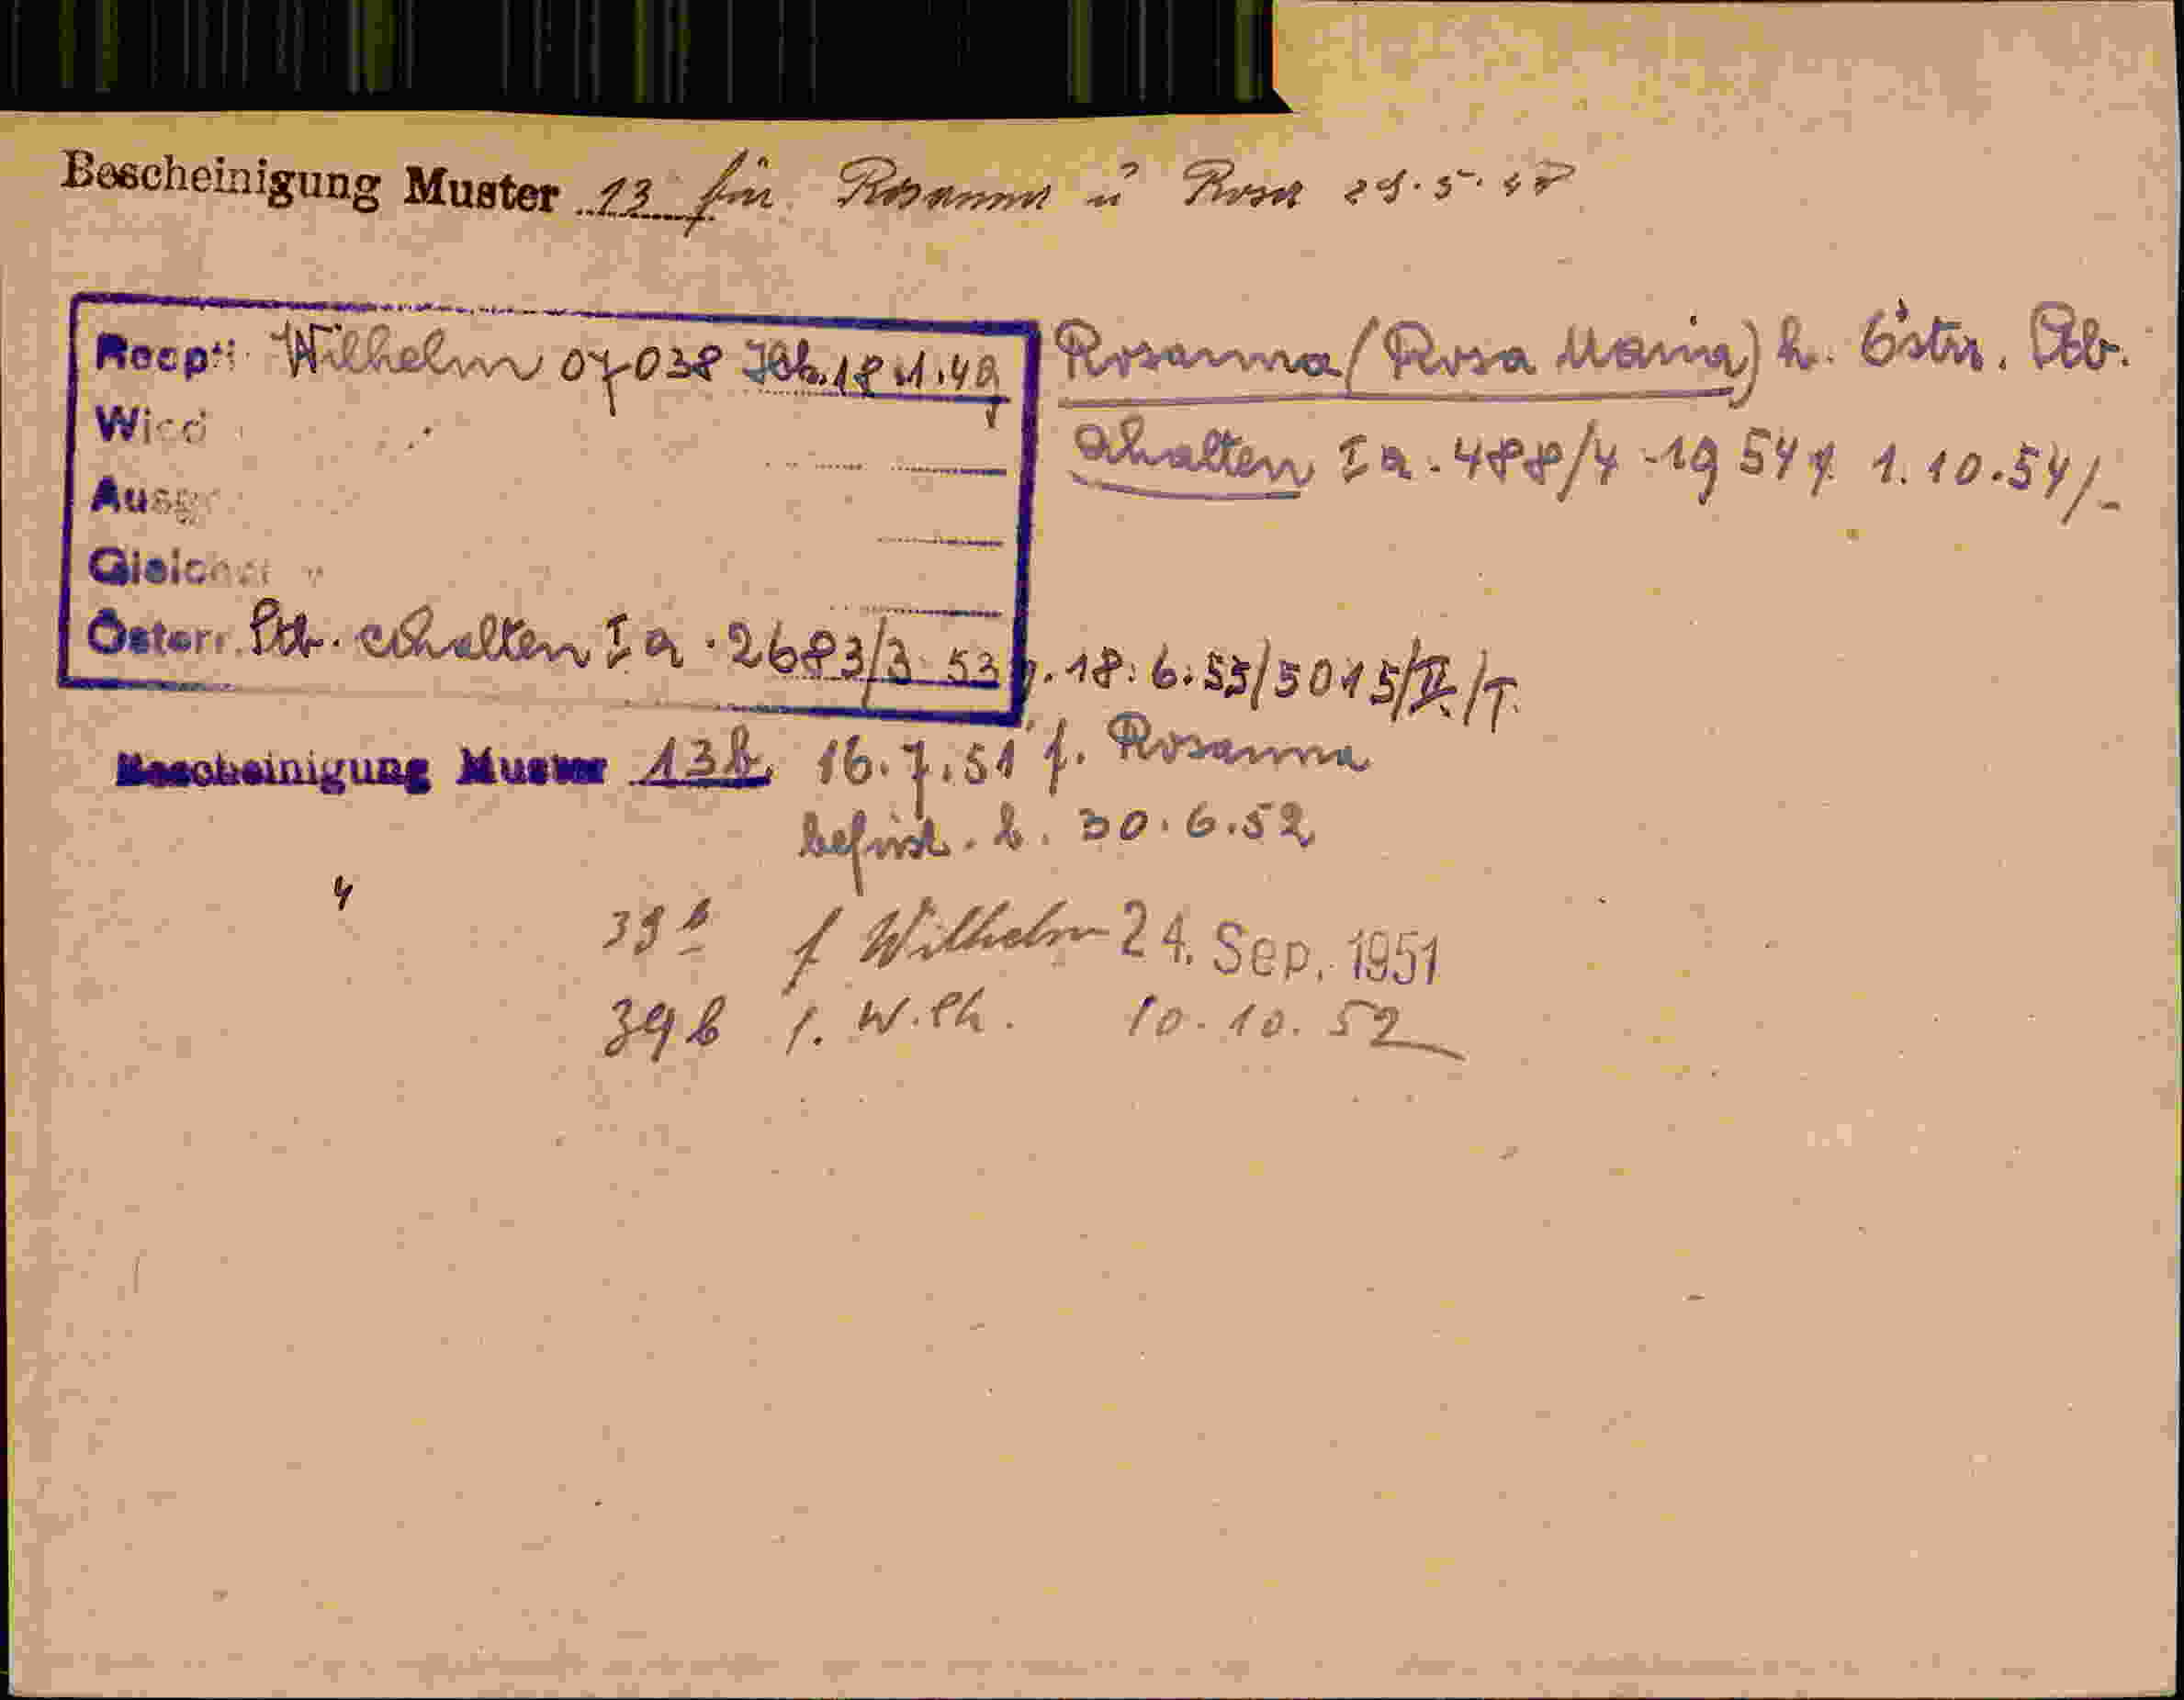 Bescheinigung Muster 13 für Rosanna u Rosa 29.5.48
Wilhelm 07038 18.1.49
Rosanna (Rosa Maria) h. Östr. Stb.
erhalten Ia. 488/4-1954 v. 1.10.54/-
Österr. Stb. erhalten Ia. 2683/3 53 v. 18.6.53/5015/II/T.
Bescheinigung Muster 13b 16.7.51 f. Rosanna
befrist. b. 30.6.52
39b f Wilhelm 24. Sep. 1951
39b f. Wilh. 10.10.52